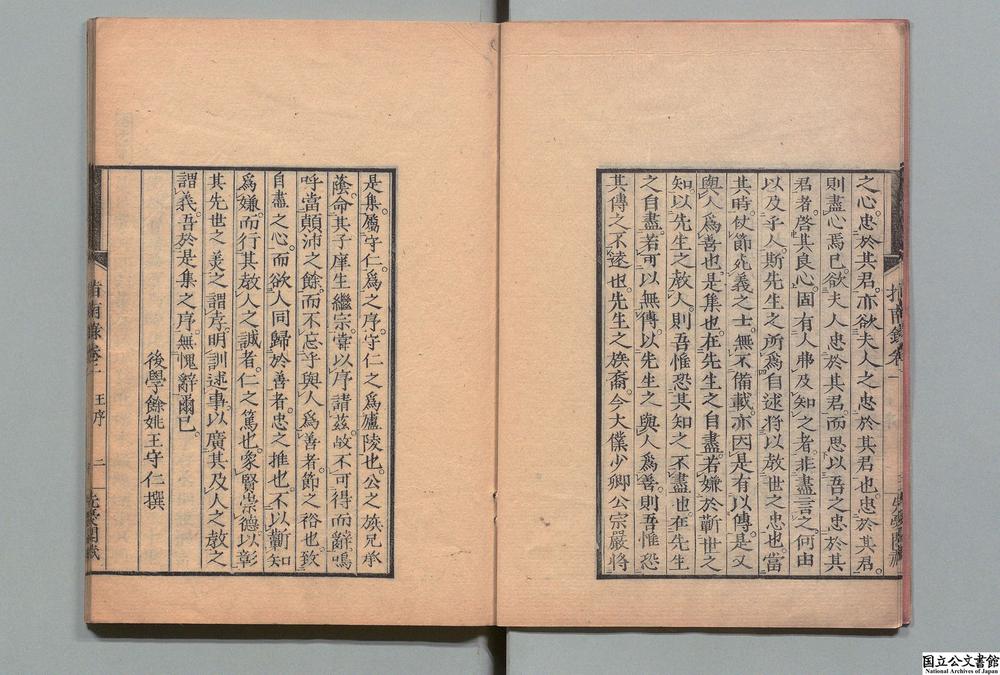 之心忠於其君。亦欲夫人之忠於其君也。忠於其君。
則盡心焉已。欲夫人忠於其君。而思以吾之忠於其
君者。啓其良心。固有人弗及知之者。非盡言之。何由
以及乎人。斯先生之所爲自述將以敎世之忠也。當
其時。仗節死義之士。無不備載。亦因是有以傳。是又
與人爲善也。是集也。在先生之自盡。若嫌於蘄世之
知。以先生之敎人。則吾惟恐其知之不盡也。在先生
之自盡。若可以無傳。以先生之與人爲善。則吾惟恐
其傳之不遠也。先生之族裔。今大僕少卿公宗嚴將
是集。屬守仁。爲之序。守仁之爲廬陵也。公之族兄承
蔭。命其子庠生繼宗。嘗以序請茲。故不可得而辭。嗚
呼當顛沛之餘。而不忘乎與人爲善者。節之裕也。致
自盡之心。而欲人同歸於善者。忠之推也。不以蘄知
爲嫌。而行其敎人之誠者。仁之篤也。象賢崇德。以彰
其先世之美之謂孝。明訓述事。以廣其及人之敎之
謂義。吾於是集之序。無愧辭爾已。
後學餘姚王守仁撰
指南錄卷一
王序
二
国立公文書館
National Archives of Japan